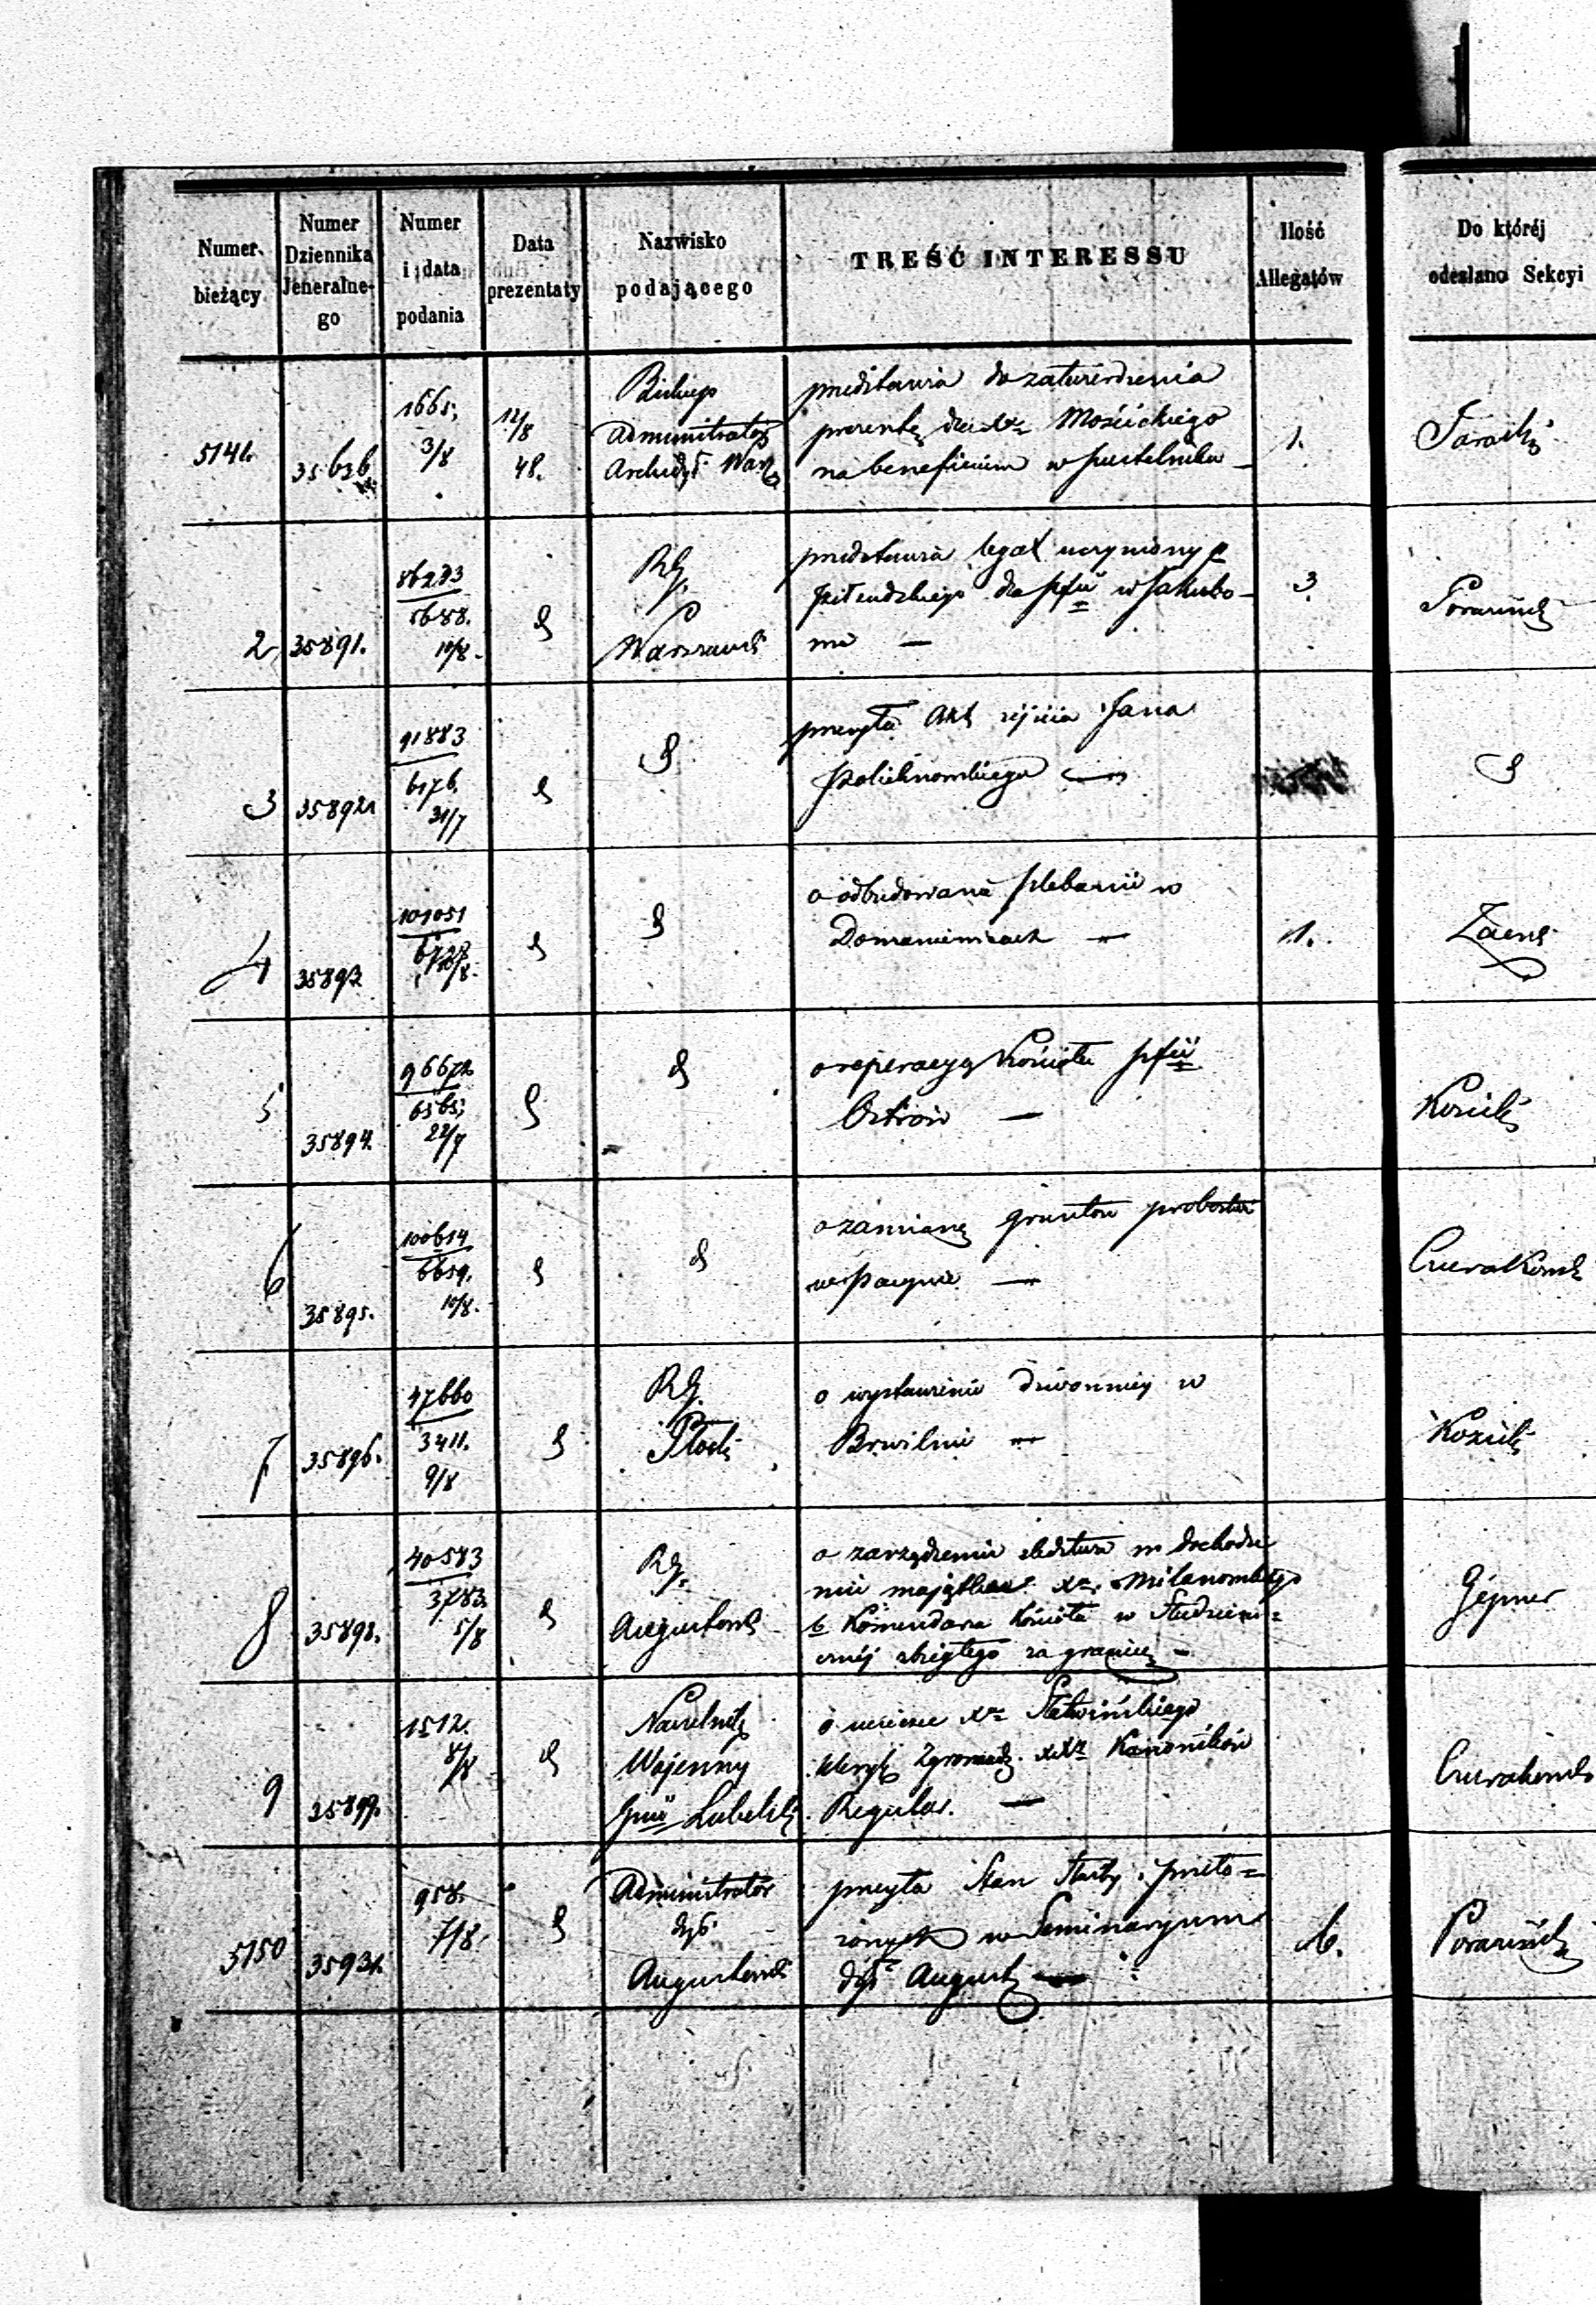 Numer bieżący
Numer Dziennika Jeneralnego
Numer i data podania
Data prezentaty
Nazwisko podającego
TREŚĆ INTERESSU
Ilość Allegatów
Do któréj odesłano Sekcyi
5141.
35636
1665.
3/8
12/8
48.
Biskup
Administrator
Archidyec. Warsz
przedstawia do zatwierdzenia
prezentę dla Xa Mościckiego
na beneficium w Pustelniku
1.
2
35891.
86273
5688.
10/8.
RG.
Warszawski
przedstawia legat uczyniony p
dla pfii w Jakubo-
wie —
3
3
35892
91883
6176.
31/7
przesyła Akt zejścia Jana
4
35893
101051
10/8.
o odbudowanie plebanii w
Domaniewicach —
1.
5
35894
96672
6565.
22/7
o reperacyą kościoła pfii
Ostrów —
Kozicki
6
35895.
100614
6659.
10/8.
o zamianę gruntów probostwa
—
7
35896.
47660
3411.
9/8
RG.
Płocki
o wystawienie dzwonnicy w
Brwilnie —
Kozicki
8
35898.
40583
3783.
5/8
RG.
Augustowski
o zarządzeniu śledztwa w dochodze
niu majątku Xa. Milanowskiego
b Komendarza kościoła w Studzieni=
cznéj zbiegłego za granicę —
Gepner
9
35899.
1512.
8/8
Naczelnik
Wojenny
Gnii Lubelskiéj
o ucieczce Xa
Kleryk Zgromadz. XXy Kanoników
Regular. —
5150
35931.
958.
7/8.
Administrator
dyec.
Augustowski
przesyła Stan Służby przeło=
żonych w Seminaryum
dyec August —
6.